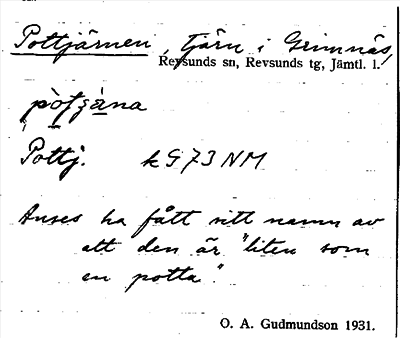 Pottjärnen, tjärn i Grimnäs,
Revsunds sn, Revsunds tg, Jämtl. l.
Pottj. k G 73 NM
Anses ha fått sitt namn av
att den är "liten som
en potta".
O. A. Gudmundson 1931.